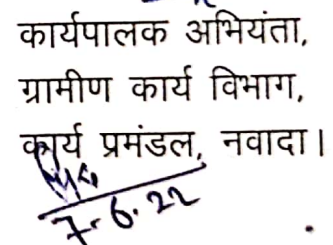 कार्यपालक अभियंता,
ग्रामीण कार्य विभाग,
कार्य प्रमंडल, नवादा।
7.6.22